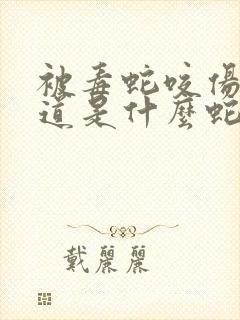 被毒蛇咬傷
道是什麼蛇
戴麗麗